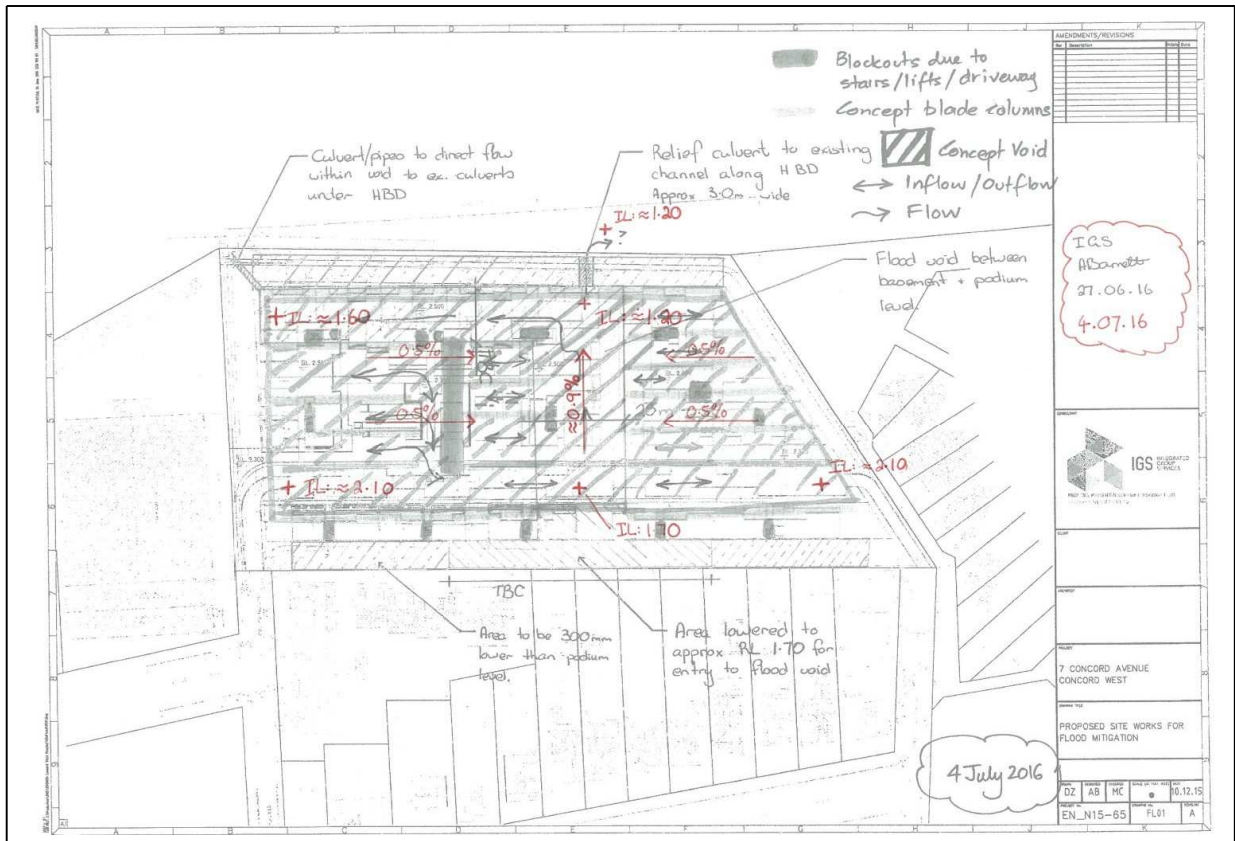 A
B
C
D
E
F
G
H
J
K
AMENDMENTS/REVISIONS
No
Description
Date
Blockouts due to
stairs/lifts/driveway
Concept blade columns
Concept Void
Inflow/Outflow
Flow
Culvert/pipes to direct flow
within void to ex. culverts
under HBD
Relief culvert to existing
channel along HBD
Approx 3.0m wide
+ IL: ≈1.20
?
Flood void between
basement + podium
level.
IGS
ABarnett
27.06.16
4.07.16
+ IL: ≈1.60
+ IL: ≈1.20
0.5%
0.5%
≈0.6%
0.5%
0.5%
+ IL: ≈2.10
IL: ≈2.10
+
+ IL: 1.70
TBC
Area to be 300mm
lower than podium
level.
Area lowered to
approx RL 1.70 for
entry to flood void
IGS INTEGRATED
GROUP
SERVICES
PROJECT
7 CONCORD AVENUE
CONCORD WEST
PROPOSED SITE WORKS FOR
FLOOD MITIGATION
4 July 2016
DZ
AB
MC
10.12.15
EN_N15-65
FL01
A
A
B
C
D
E
F
G
H
J
K